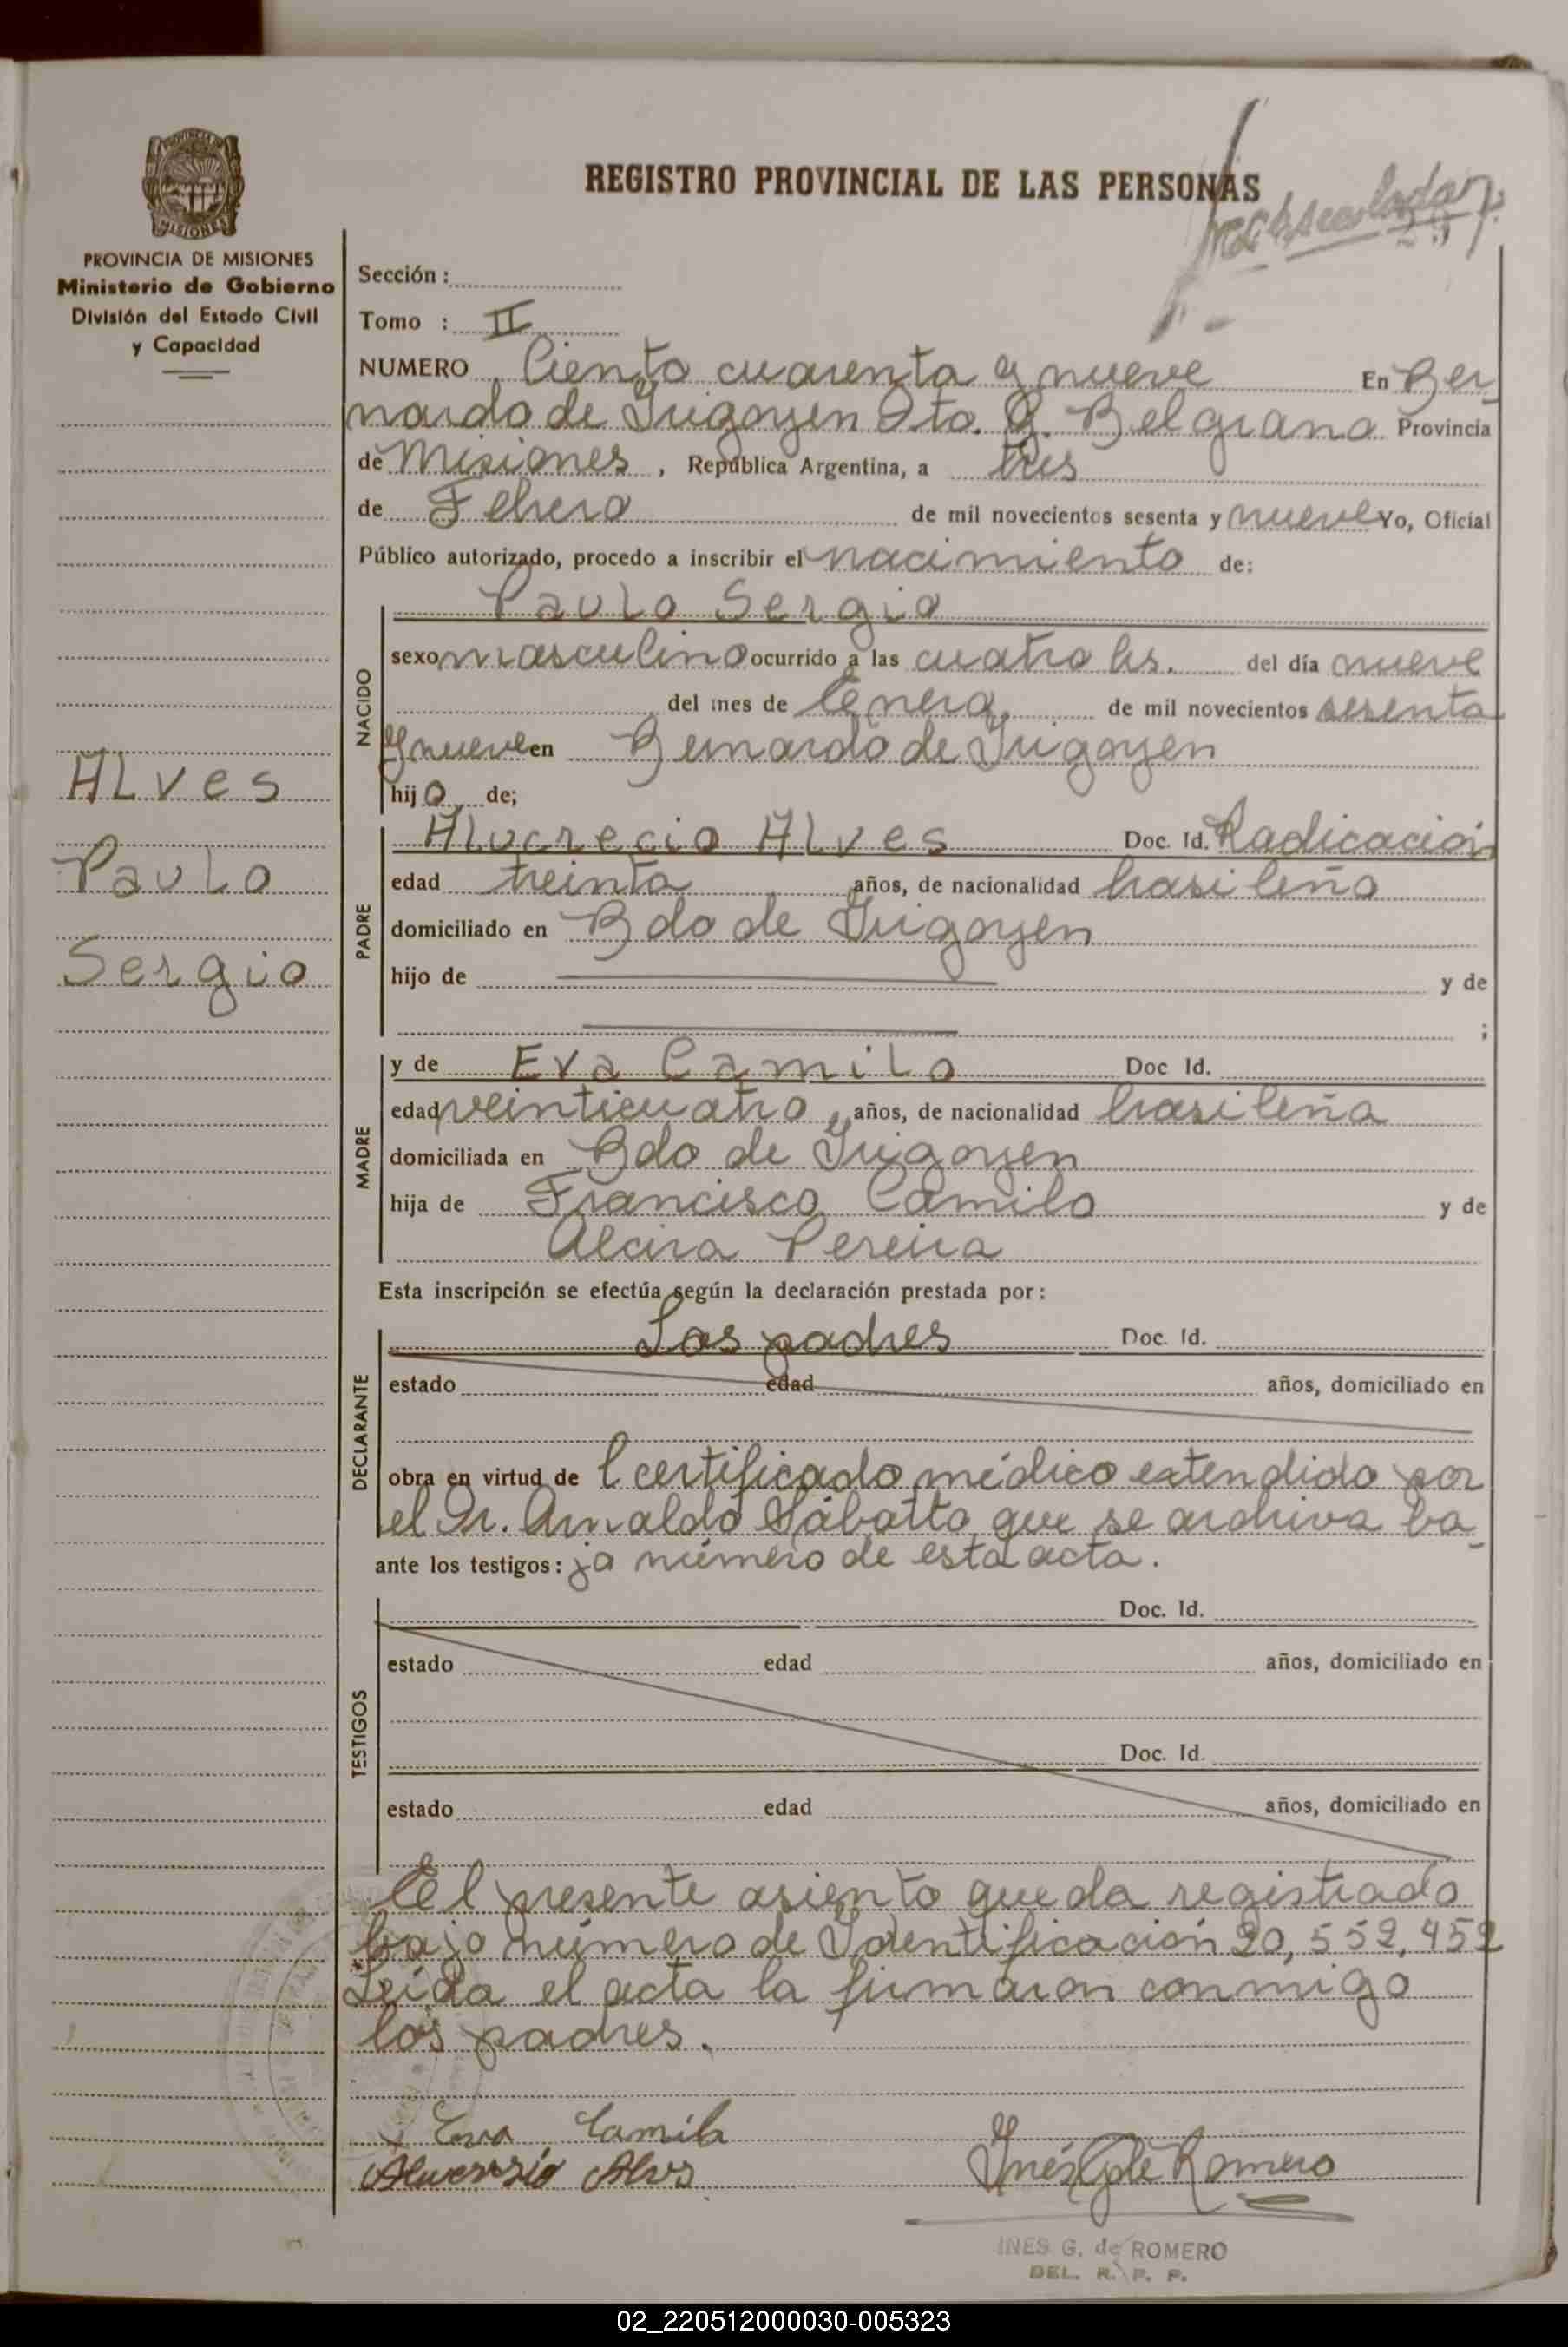 REGISTRO PROVINCIAL DE LAS PERSONAS
PROVINCIA DE MISIONES
Ministerio de Gobierno
División del Estado Civil
y Capacidad
ALves
Paulo
Sergio
Sección :
Tomo : II
NUMERO Ciento cuarenta y nueve En Ber-
nardo de Irigoyen Dto. G. Belgrano Provincia
de Misiones , República Argentina, a tres
de Febrero de mil novecientos sesenta y nueve Yo, Oficial
Público autorizado, procedo a inscribir el nacimiento de:
NACIDO
Paulo Sergio
sexo masculino ocurrido a las cuatro hs. del día nueve
del mes de Enero de mil novecientos sesenta
y nueve en Bernardo de Irigoyen
hijo de;
PADRE
Alucrecio ALves Doc. Id. Radicación
edad treinta años, de nacionalidad brasileño
domiciliado en Bdo de Irigoyen
hijo de y de
;
MADRE
y de Eva Camilo Doc Id.
edad veinticuatro años, de nacionalidad brasileña
domiciliada en Bdo de Irigoyen
hija de Francisco Camilo y de
Alcira Pereira
Esta inscripción se efectúa según la declaración prestada por :
DECLARANTE
Los padres Doc. Id.
estado edad años, domiciliado en
obra en virtud de l certificado médico extendido por
el Dr. Arnaldo Sábatto que se archiva ba-
ante los testigos: jo número de esta acta.
TESTIGOS
Doc. Id.
estado edad años, domiciliado en
Doc. Id.
estado edad años, domiciliado en
El presente asiento queda registrado
bajo número de Identificación 20,552,452
Leída el acta la firmaron conmigo
los padres.
x Eva Camilo
Alves
Inés G de Romero
INES G. de ROMERO
DEL. R. P. P.
02_220512000030-005323